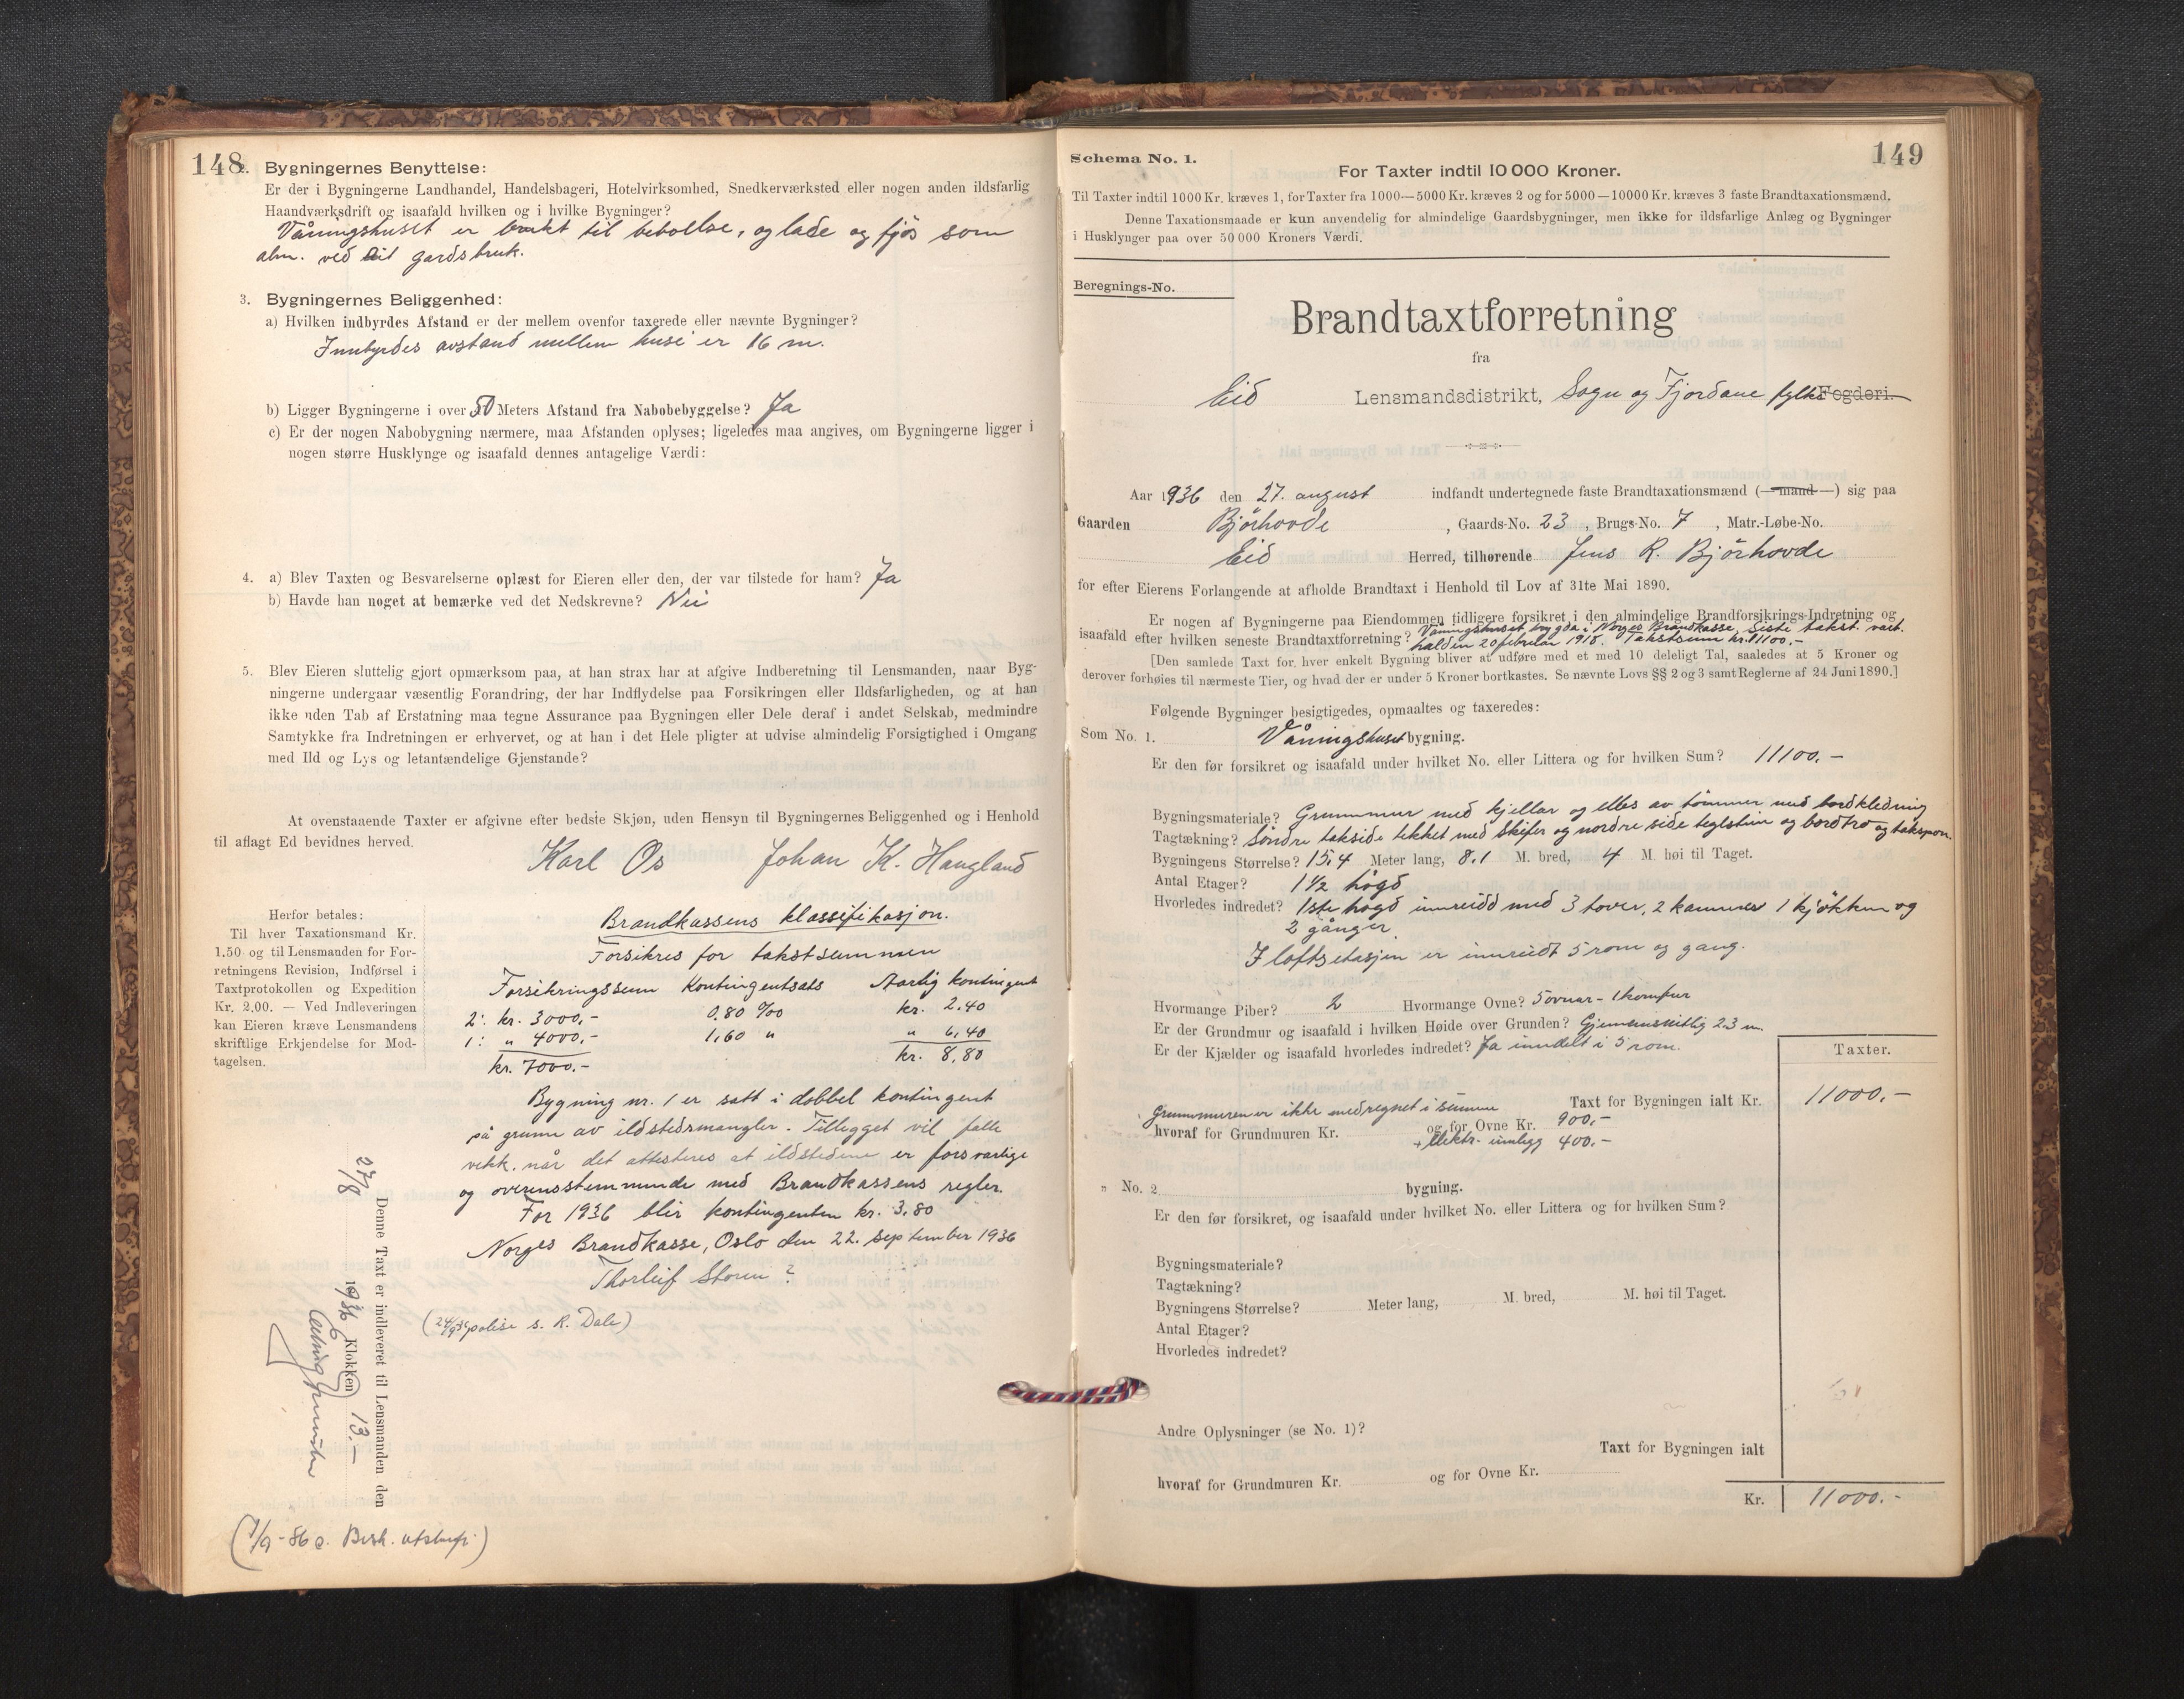 148
2. Bygningernes Benyttelse:
Er der i Bygningerne Landhandel, Handelsbageri, Hotelvirksomhed, Snedkerværksted eller nogen anden ildsfarlig
Haandværksdrift og isaafald hvilken og i hvilke Bygninger?
Våningshuset er brukt til beboelse, og lade og fjös som
alm. ved eit gardsbruk.
3. Bygningernes Beliggenhed:
a) Hvilken indbyrdes Afstand er der mellem ovenfor taxerede eller nævnte Bygninger?
Innbyrdes avstand mellem husi er 16 m.
b) Ligger Bygningerne i over 50 Meters Afstand fra Nabobebyggelse? Ja
c) Er der nogen Nabobygning nærmere, maa Afstanden oplyses; ligeledes maa angives, om Bygningerne ligger i
nogen større Husklynge og isaafald dennes antagelige Værdi:
4. a) Blev Taxten og Besvarelserne oplæst for Eieren eller den, der var tilstede for ham? Ja
b) Havde han noget at bemærke ved det Nedskrevne? Nei
5. Blev Eieren sluttelig gjort opmærksom paa, at han strax har at afgive Indberetning til Lensmanden, naar Byg-
ningerne undergaar væsentlig Forandring, der har Indflydelse paa Forsikringen eller Ildsfarligheden, og at han
ikke uden Tab af Erstatning maa tegne Assurance paa Bygningen eller Dele deraf i andet Selskab, medmindre
Samtykke fra Indretningen er erhvervet, og at han i det Hele pligter at udvise almindelig Forsigtighed i Omgang
med Ild og Lys og letantændelige Gjenstande?
At ovenstaaende Taxter er afgivne efter bedste Skjøn, uden Hensyn til Bygningernes Beliggenhed og i Henhold
til aflagt Ed bevidnes herved.
Karl Os Johan K. Haugland
Herfor betales:
Til hver Taxationsmand Kr.
1.50 og til Lensmanden for For-
retningens Revision, Indførsel i
Taxtprotokollen og Expedition
Kr. 2,00. — Ved Indleveringen
kan Eieren kræve Lensmandens
skriftlige Erkjendelse for Mod-
tagelsen.
Brandkassens klassifikasjon.
Forsikres for takstsummen
Forsikringssum Kontingentsats Aarlig kontingent
2: kr. 3000,- 0,80 ‰ kr. 2.40
1: " 4000,- 1,60 " " 6,40
kr. 7000.- kr. 8,80
Bygning nr. 1 er satt i dobbel kontingent
på grunn av ildstedsmangler. Tillegget vil falle
vekk, når det attesteres at ildstedene er forsvarlige
og overensstemmende med Brandkassens regler.
For 1936 blir kontingenten kr. 3,80
Norges Brandkasse, Oslo den 22. september 1936
Thorleif Storm ?
(24/9 36 polise s. R. Dale)
Denne Taxt er indleveret til Lensmanden den
27/8 1936 Klokken 13.—
149
Schema No. 1.
For Taxter indtil 10 000 Kroner.
Til Taxter indtil 1000 Kr. kræves 1, for Taxter fra 1000—5000 Kr. kræves 2 og for 5000—10000 Kr. kræves 3 faste Brandtaxationsmænd.
Denne Taxationsmaade er kun anvendelig for almindelige Gaardsbygninger, men ikke for ildsfarlige Anlæg og Bygninger
i Husklynger paa over 50 000 Kroners Værdi.
Beregnings-No.
Brandtaxtforretning
fra
Eid Lensmandsdistrikt, Sogn og Fjordane fylke Fogderi.
Aar 1936 den 27. august indfandt undertegnede faste Brandtaxationsmænd (—mand—) sig paa
Gaarden Bjørhovde, Gaards-No. 23, Brugs-No. 7, Matr.-Løbe-No.
Eid Herred, tilhørende Jens R. Bjørhovde
for efter Eierens Forlangende at afholde Brandtaxt i Henhold til Lov af 31te Mai 1890.
Er nogen af Bygningerne paa Eiendommen tidligere forsikret i den almindelige Brandforsikrings-Indretning og
isaafald efter hvilken seneste Brandtaxtforretning? Våningshuset trygda i Norges Brandkasse. Siste takst vart
halden 20 februar 1918. Takstsum kr. 11100.-
[Den samlede Taxt for hver enkelt Bygning bliver at udføre med et med 10 deleligt Tal, saaledes at 5 Kroner og
derover forhøies til nærmeste Tier, og hvad der er under 5 Kroner bortkastes. Se nævnte Lovs §§ 2 og 3 samt Reglerne af 24 Juni 1890.]
Følgende Bygninger besigtigedes, opmaaltes og taxeredes:
Som No. 1. Våningshuset bygning.
Er den før forsikret og isaafald under hvilket No. eller Littera og for hvilken Sum? 11100.-
Bygningsmateriale? Grunnmur med kjellar og elles av tömmer med bordkledning
Tagtækning? Söndre takside tekket med skifer og nordre side teglstein og bordtro og takspon.
Bygningens Størrelse? 15,4 Meter lang, 8,1 M. bred, 4 M. høi til Taget.
Antal Etager? 1 1/2 högd
Hvorledes indredet? 1ste högd innreidd med 3 stover, 2 kammer 1 kjökken og
2 gånger
I loftsetasjen er innreidt 5 rom og gang.
Hvormange Piber? 2 Hvormange Ovne? 5 ovnar - 1 komfur
Er der Grundmur og isaafald i hvilken Høide over Grunden? Gjennemsnitlig 2,3 m.
Er der Kjælder og isaafald hvorledes indredet? Ja inndelt i 5 rom.
Taxter.
Taxt for Bygningen ialt Kr. 11000.-
Grunnmuren er ikke medregnet i summen
hvoraf for Grundmuren Kr. og for Ovne Kr. 900,-
+ elektr. innlegg 400.-
" No. 2 bygning.
Er den før forsikret, og isaafald under hvilket No. eller Littera og for hvilken Sum?
Bygningsmateriale?
Tagtækning?
Bygningens Størrelse? Meter lang, M. bred, M. høi til Taget.
Antal Etager?
Hvorledes indredet?
Andre Oplysninger (se No. 1)?
Taxt for Bygningen ialt
hvoraf for Grundmuren Kr. og for Ovne Kr.
Kr. 11000.-